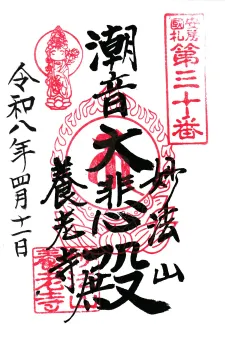 安房
國札
第三十番
妙法山
潮音大悲殿
養老寺
令和八年四月十一日